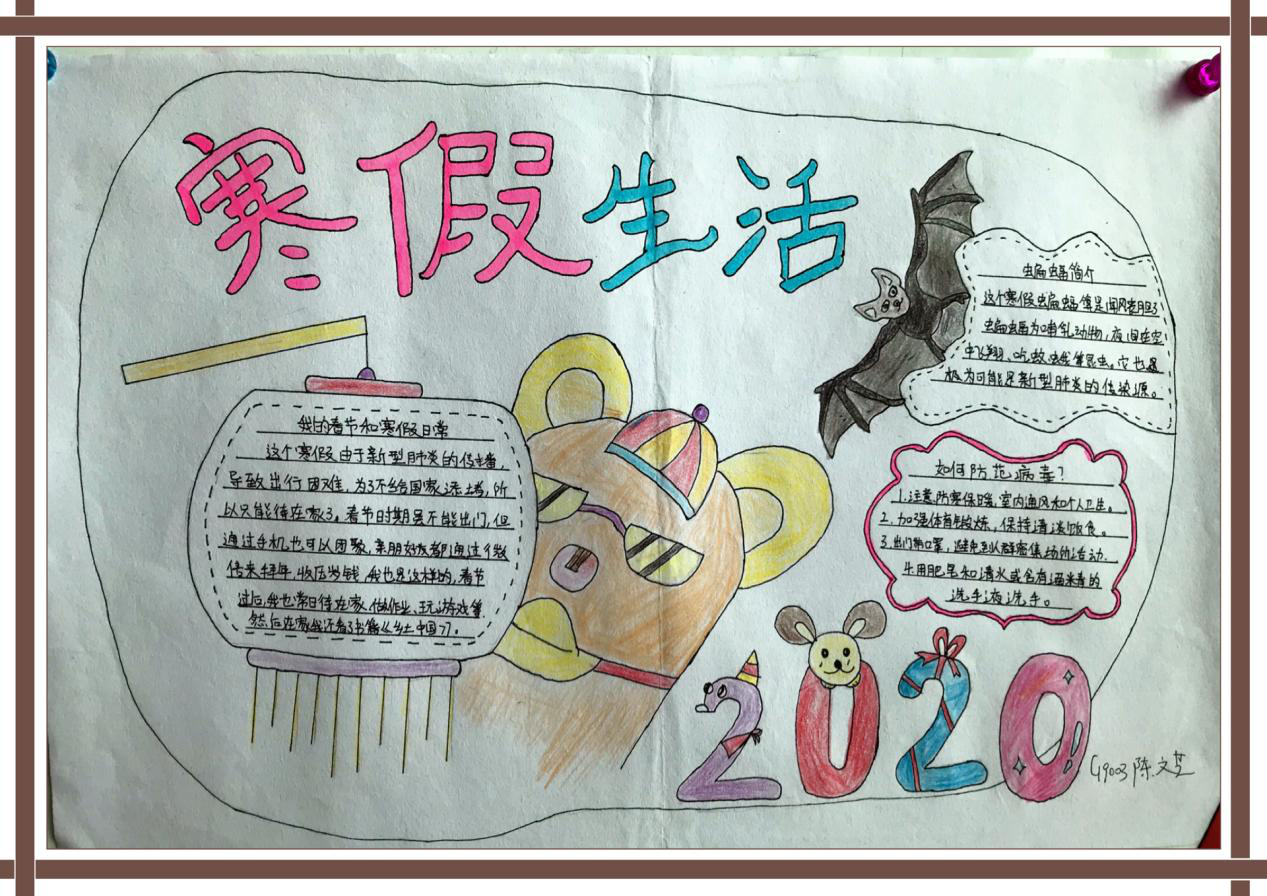 寒假生活
蝙蝠简介
这个寒假蝙蝠算是闻风丧胆了
蝙蝠为哺乳动物，夜间在空
中飞翔，吃蚊虫蛾等昆虫。它也是
极为可能是新型肺炎的传染源。
我的春节和寒假日常
这个寒假由于新型肺炎的传播，
导致出行困难，为了不给国家添堵，所
以只能待在家了。春节时期虽不能出门，但
通过手机也可以团聚，亲朋好友都通过微
信来拜年，收压岁钱，我也是这样的，春节
过后，我也常日待在家，做作业、玩游戏等
然后在家我还看了书籍《乡土中国》。
如何防范病毒？
1.注意防寒保暖，室内通风和个人卫生。
2.加强体育锻炼，保持清淡饮食。
3.出门带口罩，避免到人群密集场所活动.
4.用肥皂和清水或含有酒精的
洗手液洗手。
2020
G1903 陈文芝